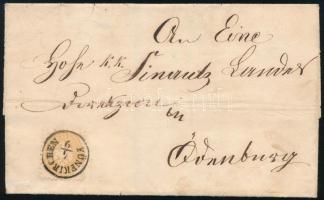 An Eine
Hohe k.k. Finantz Landes
Direkzion in
Ödenburg
FÜNFKIRCHEN